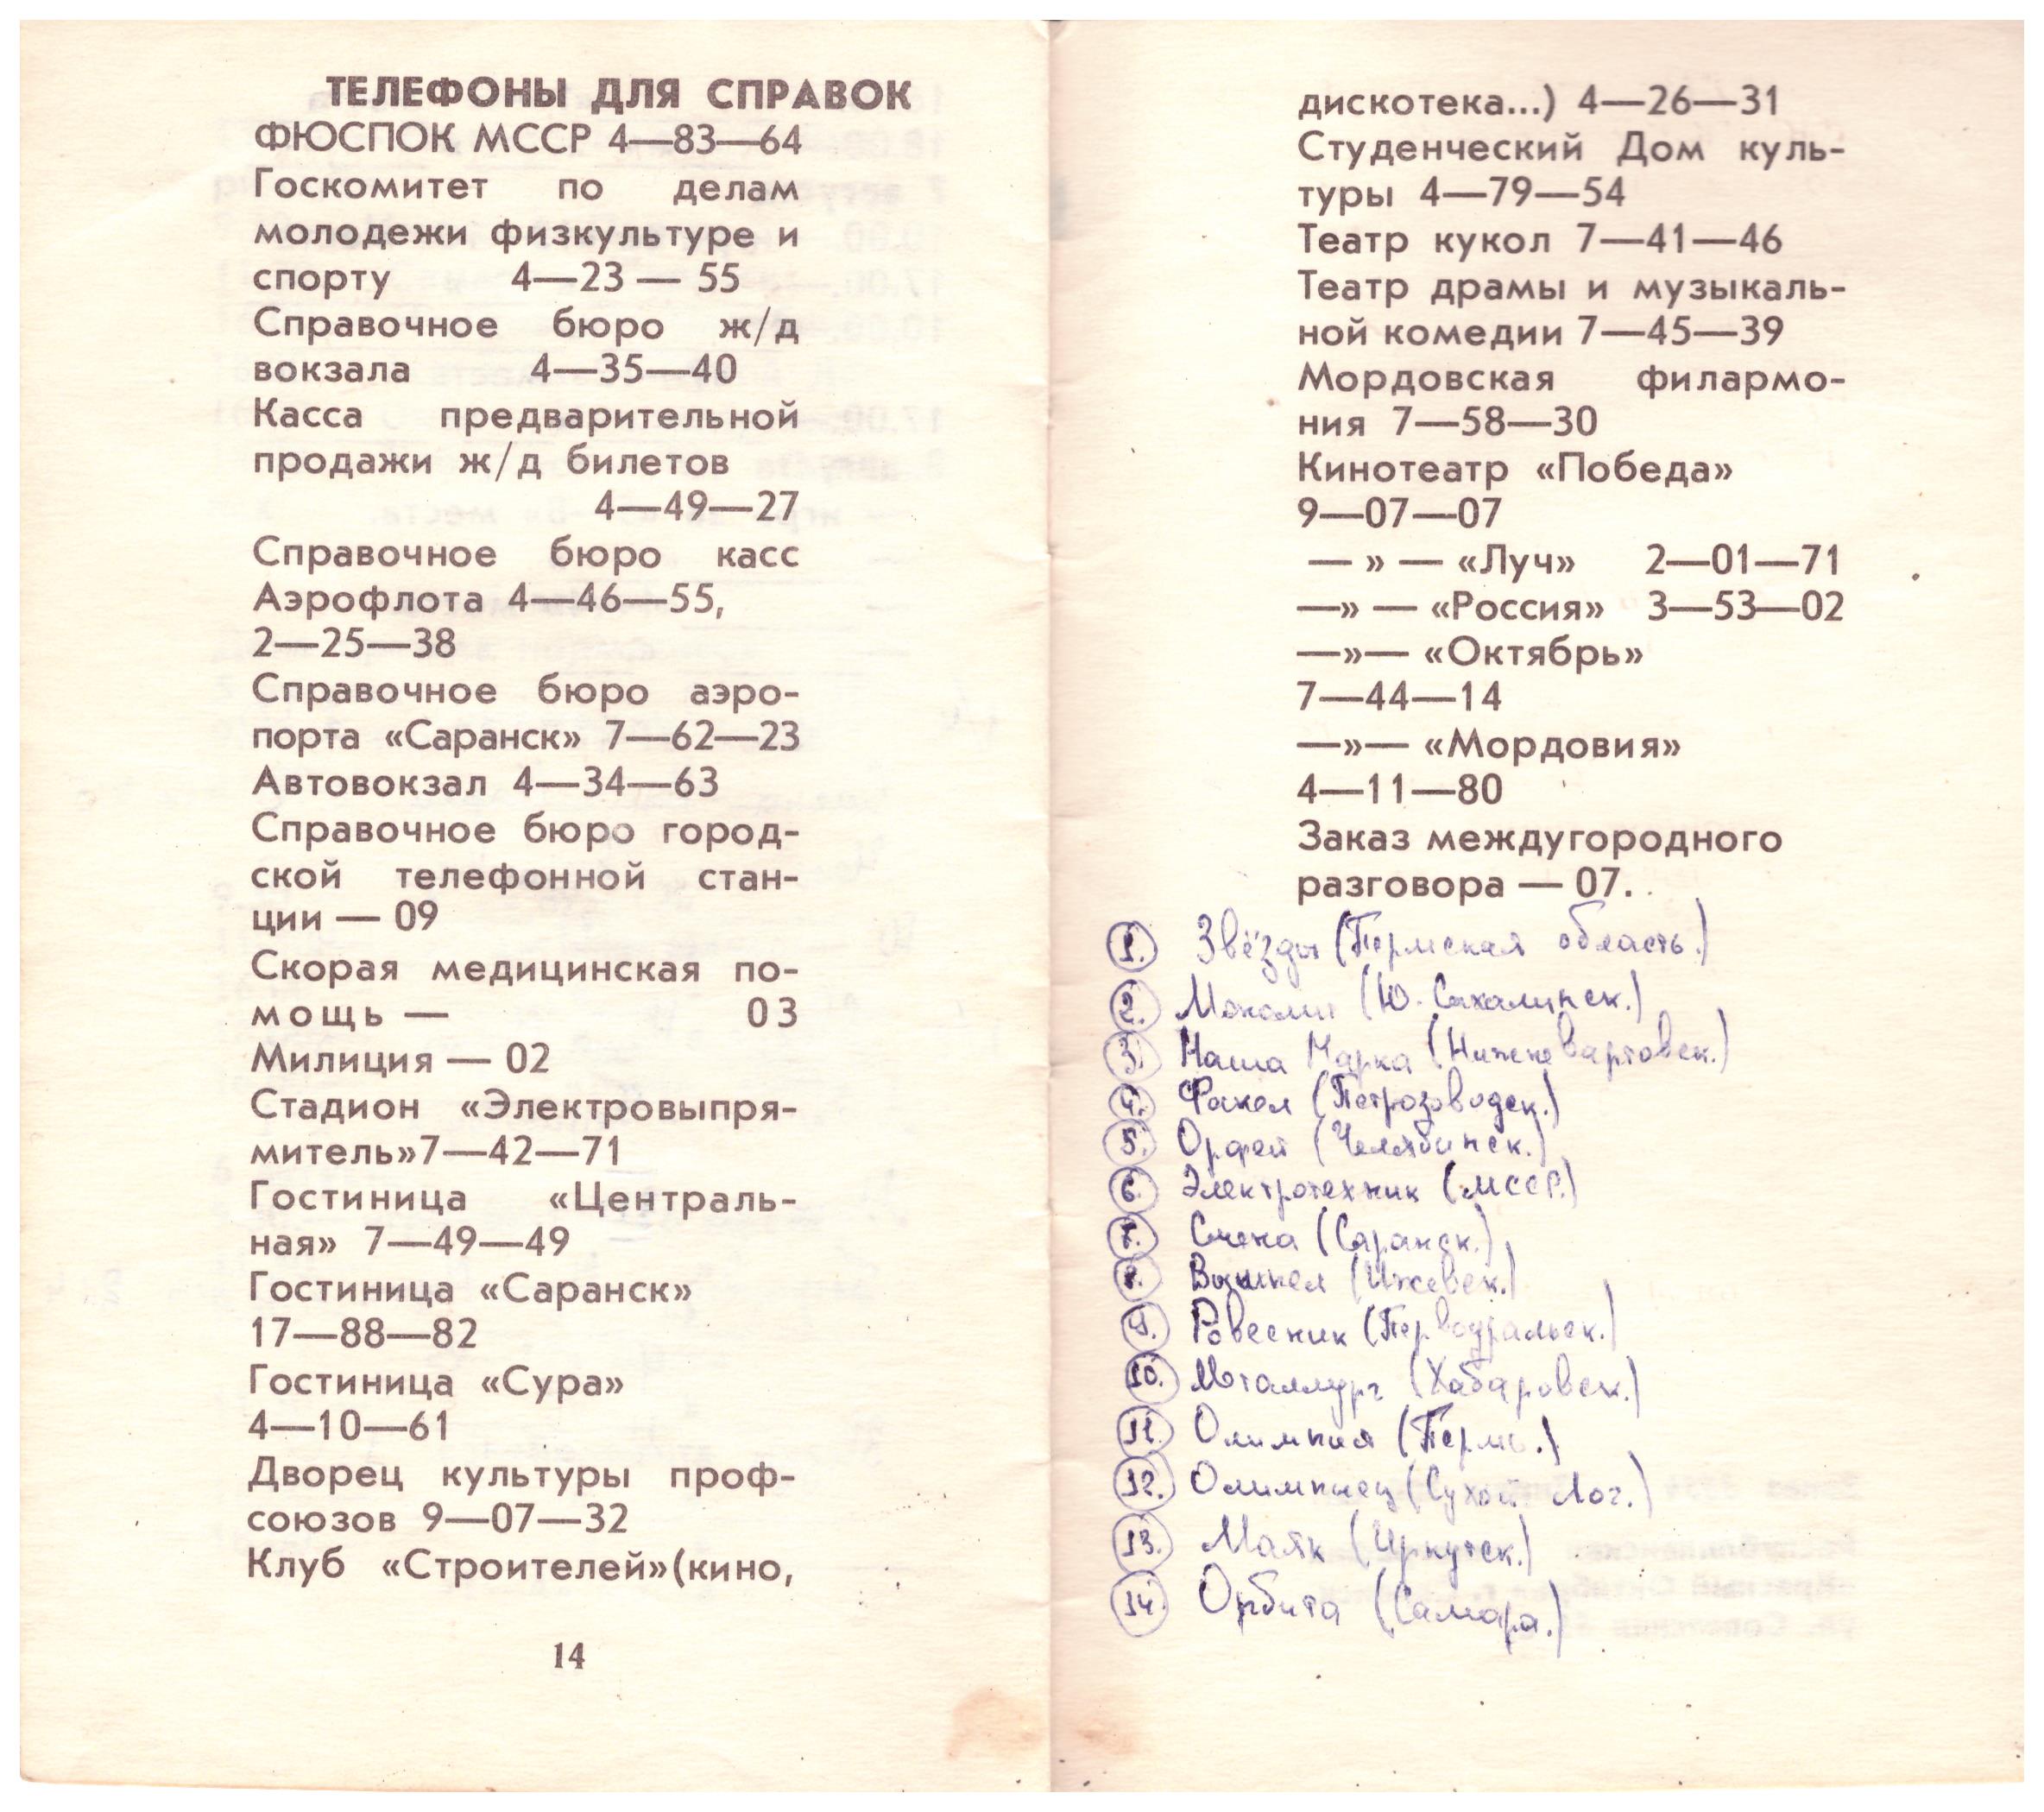 ТЕЛЕФОНЫ ДЛЯ СПРАВОК
ФЮСПОК МССР 4—83—64
Госкомитет по делам
молодежи физкультуре и
спорту 4—23 — 55
Справочное бюро ж/д
вокзала 4—35—40
Касса предварительной
продажи ж/д билетов
4—49—27
Справочное бюро касс
Аэрофлота 4—46—55,
2—25—38
Справочное бюро аэро-
порта «Саранск» 7—62—23
Автовокзал 4—34—63
Справочное бюро город-
ской телефонной стан-
ции — 09
Скорая медицинская по-
мощь — 03
Милиция — 02
Стадион «Электровыпря-
митель»7—42—71
Гостиница «Централь-
ная» 7—49—49
Гостиница «Саранск»
17—88—82
Гостиница «Сура»
4—10—61
Дворец культуры проф-
союзов 9—07—32
Клуб «Строителей»(кино,
14
дискотека...) 4—26—31
Студенческий Дом куль-
туры 4—79—54
Театр кукол 7—41—46
Театр драмы и музыкаль-
ной комедии 7—45—39
Мордовская филармо-
ния 7—58—30
Кинотеатр «Победа»
9—07—07
— » — «Луч» 2—01—71
—» — «Россия» 3—53—02
—»— «Октябрь»
7—44—14
—»— «Мордовия»
4—11—80
Заказ междугородного
разговора — 07.
1. Звёзды (Пермская область.)
2. (Ю. Сахалинск.)
3. Наша Марка (Нижневартовск.)
4. Факел (Петрозоводск.)
5. Орфей (Челябинск.)
6. Электротехник (МССР.)
7. Смена (Саранск.)
8. (Ижевск.)
9. Ровесник (Первоуральск.)
10. Металлург (Хабаровск.)
11. Олимпия (Пермь.)
12. Олимпиец (Сухой Лог.)
13. Маяк (Иркутск.)
14. Орбита (Самара.)